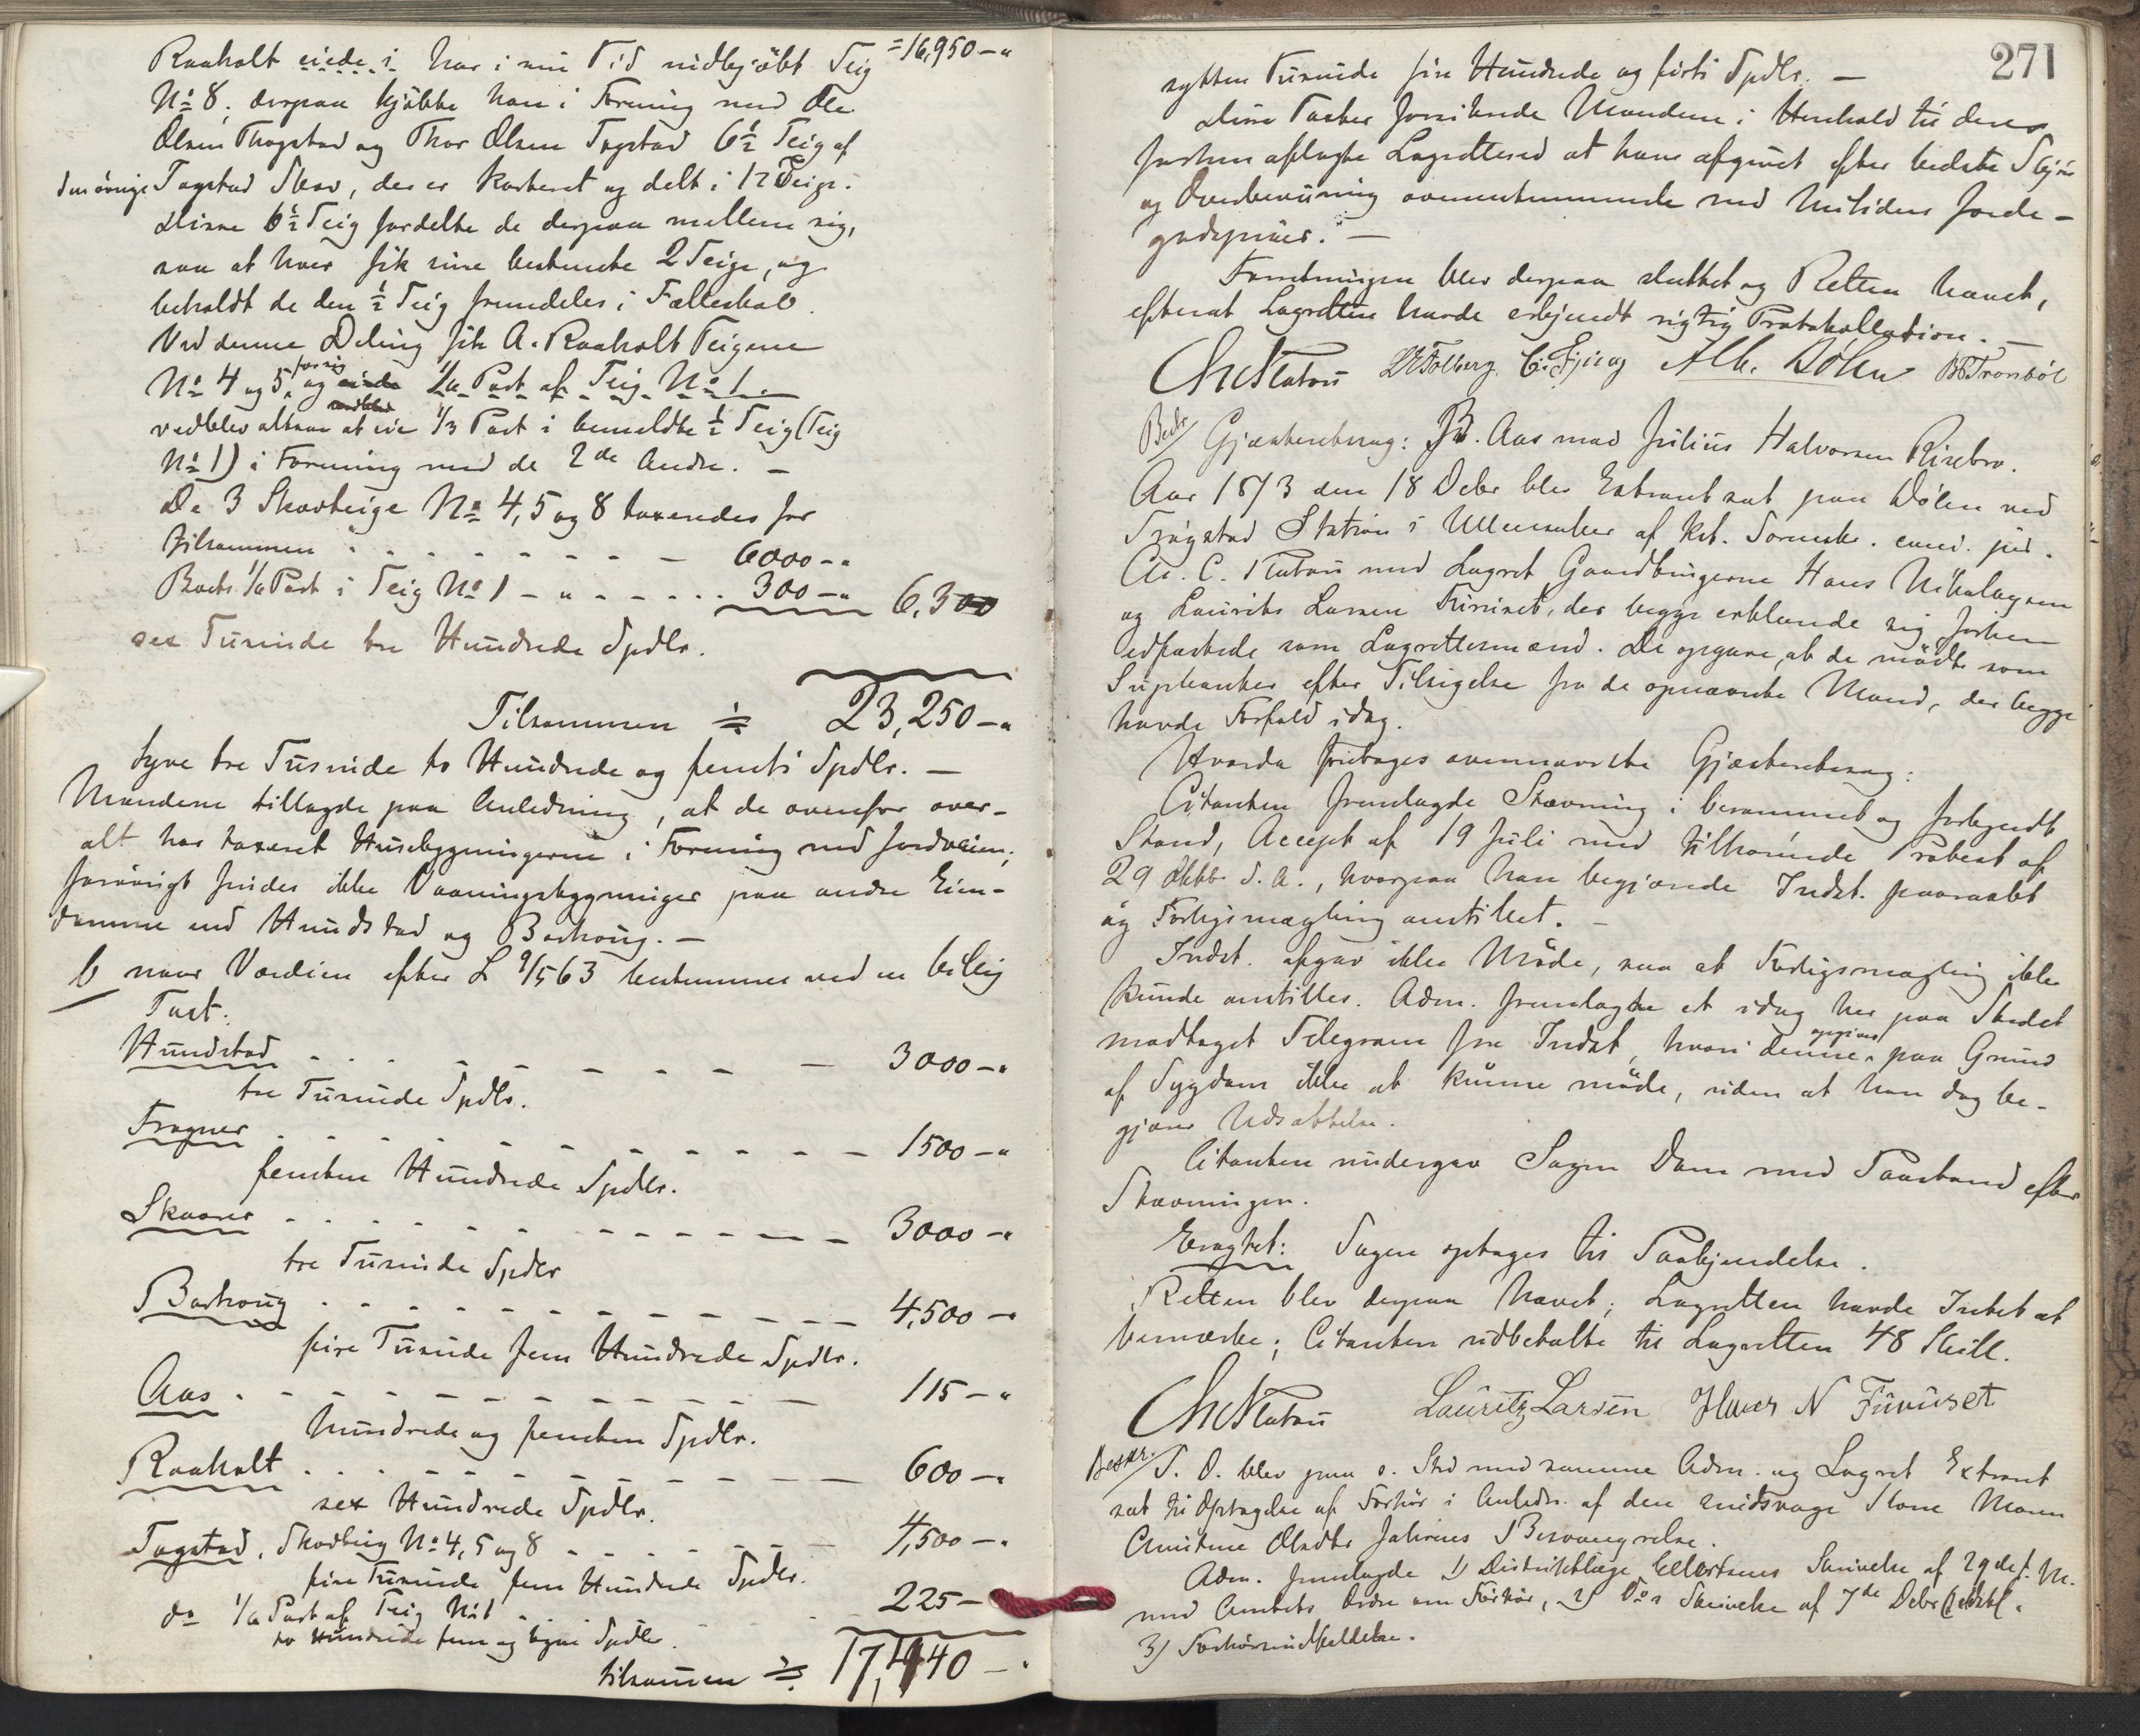 Raaholt eiede i har i min Tid indkjøbt Teig =16,950-"
No 8, derpaa kjøbte han i Forening med Ole
Olsen Thogstad og Thor Olsen Togstad 6½ Teig af
den øvrige Togstad Skov, der er karteret og delt i 12 Teige.
Disse 6½ Teig fordelte de derpaa mellem sig,
saa at hver fik sine bestemte 2 Teige, og
beholdt de den ½ Teig fremdeles i Fælleskab.
Ved denne Deling fik A. Raaholt Teigene
No 4 og 5 for sig og eiede 1/6 Part af Teig No 1.
vedblev altsaa at eie 1/3 Part i bemeldte ½ Teig (Teig
No 1) i Forening med de 2de Andre. -
De 3 Skovteige No 4, 5 og 8 taxeredes for
tilsammen 6000-"
1/6 Part i Teig No 1 - " - 300-" 6,300
sex Tusinde tre Hundrede Spdlr.
Tilsammen 23,250-"
tyve tre Tusinde to Hundrede og femti Spdlr. -
Mændene tillagde paa Anledning, at de ovenfor over-
alt har taxeret Husebygningerne i Forening med Jordveien;
forøvrigt findes ikke Vaaningsbygninger paa andre Eien-
domme end Hundstad og Borhoug. -
b naar Værdien efter L 9/5 63 bestemmes ved en billig
Taxt:
Hundstad 3000-"
tre Tusinde Spdlr.
Frogner 1500-"
femten Hundrede Spdlr.
Skaarer 3000-"
tre Tusinde Spdlr
Borhoug 4,500-"
fire Tusinde fem Hundrede Spdlr.
Aas 115-"
hundrede og femten Spdlr.
Raaholt 600-"
sex Hundrede Spdlr.
Togstad, Skovteig No 4, 5 og 8 4,500-"
fire Tusinde fem Hundrede Spdlr.
do 1/6 Part af Teig No 1 225-
to Hundrede fem og tyve Spdlr.
tilsammen 17,440-"
271
sytten Tusinde fire Hundrede og firti Spdlr. -
Disse Taxter forsikrede Mændene i Henhold til deres
forhen aflagte Lagrettesed at have afgivet efter bedste Skjøn
og Overbevisning overensstemmende med Nutidens Jorde-
godspriser. -
Forretningen blev derpaa sluttet og Retten hævet,
efterat Lagretten havde erkjendt rigtig Protokollation. -
Chr Platou Alb. Bølen
Beskr Gjæsteretssag: Aas mod Julius Halvorsen Risebro.
Aar 1873 den 18 Debr blev Extraret sat paa Dølen ved
Trøgstad Station i Ullensaker af kst. Sorenskr. cand. jur.
Chr. C. Platou med Lagret Gaardbrugerne Hans Nikolaysen
og Lauritz Larsen Furuset, der begge erklærede sig forhen
edfæstede som Lagrettesmænd. De opgave, at de mødte som
Supleanter efter Tilsigelse fra de opnævnte Mænd, der begge
havde Forfald idag.
Hvorda foretoges ovennævnte Gjæsteretssag:
Citanten fremlagde Stævning i berammet og forkyndt
Stand, Accept af 19 Juli med tilhørende Protest af
29 Oktbr d. A., hvorpaa han begjærede Indst. paaraabt
og Forligsmægling anstillet. -
Indst. afgav ikke Møde, saa at Forligsmægling ikke
kunde anstilles. Adm. fremlagde et idag her paa Stedet
modtaget Telegram fra Indst, hvori denne opgiver paa Grund
af Sygdom ikke at kunne møde, uden at han dog be-
gjærer Udsættelse.
Citanten undergav Sagen Dom med Paastand efter
Stævningen.
Eragtet: Sagen optages til Paakjendelse.
Retten blev derpaa hævet; Lagretten havde Intet at
bemærke; Citanten udbetalte til Lagretten 48 Skill.
Chr Platou Lauritz Larsen Hans N Furuset
Beskr. S. D. blev paa s. Std med samme Adm. og Lagret Extraret
sat til Optagelse af Forhør i Anledn. af den sindsvage Karen
Olsdtr Besvangrelse.
Adm. fremlagde 1) Distriktslæge Skrivelse af 29de f. M.
med Amtets Ordre om Forhør, 2) Do s Skrivelse af 7de Debr
3) Forhørsindkaldelse.